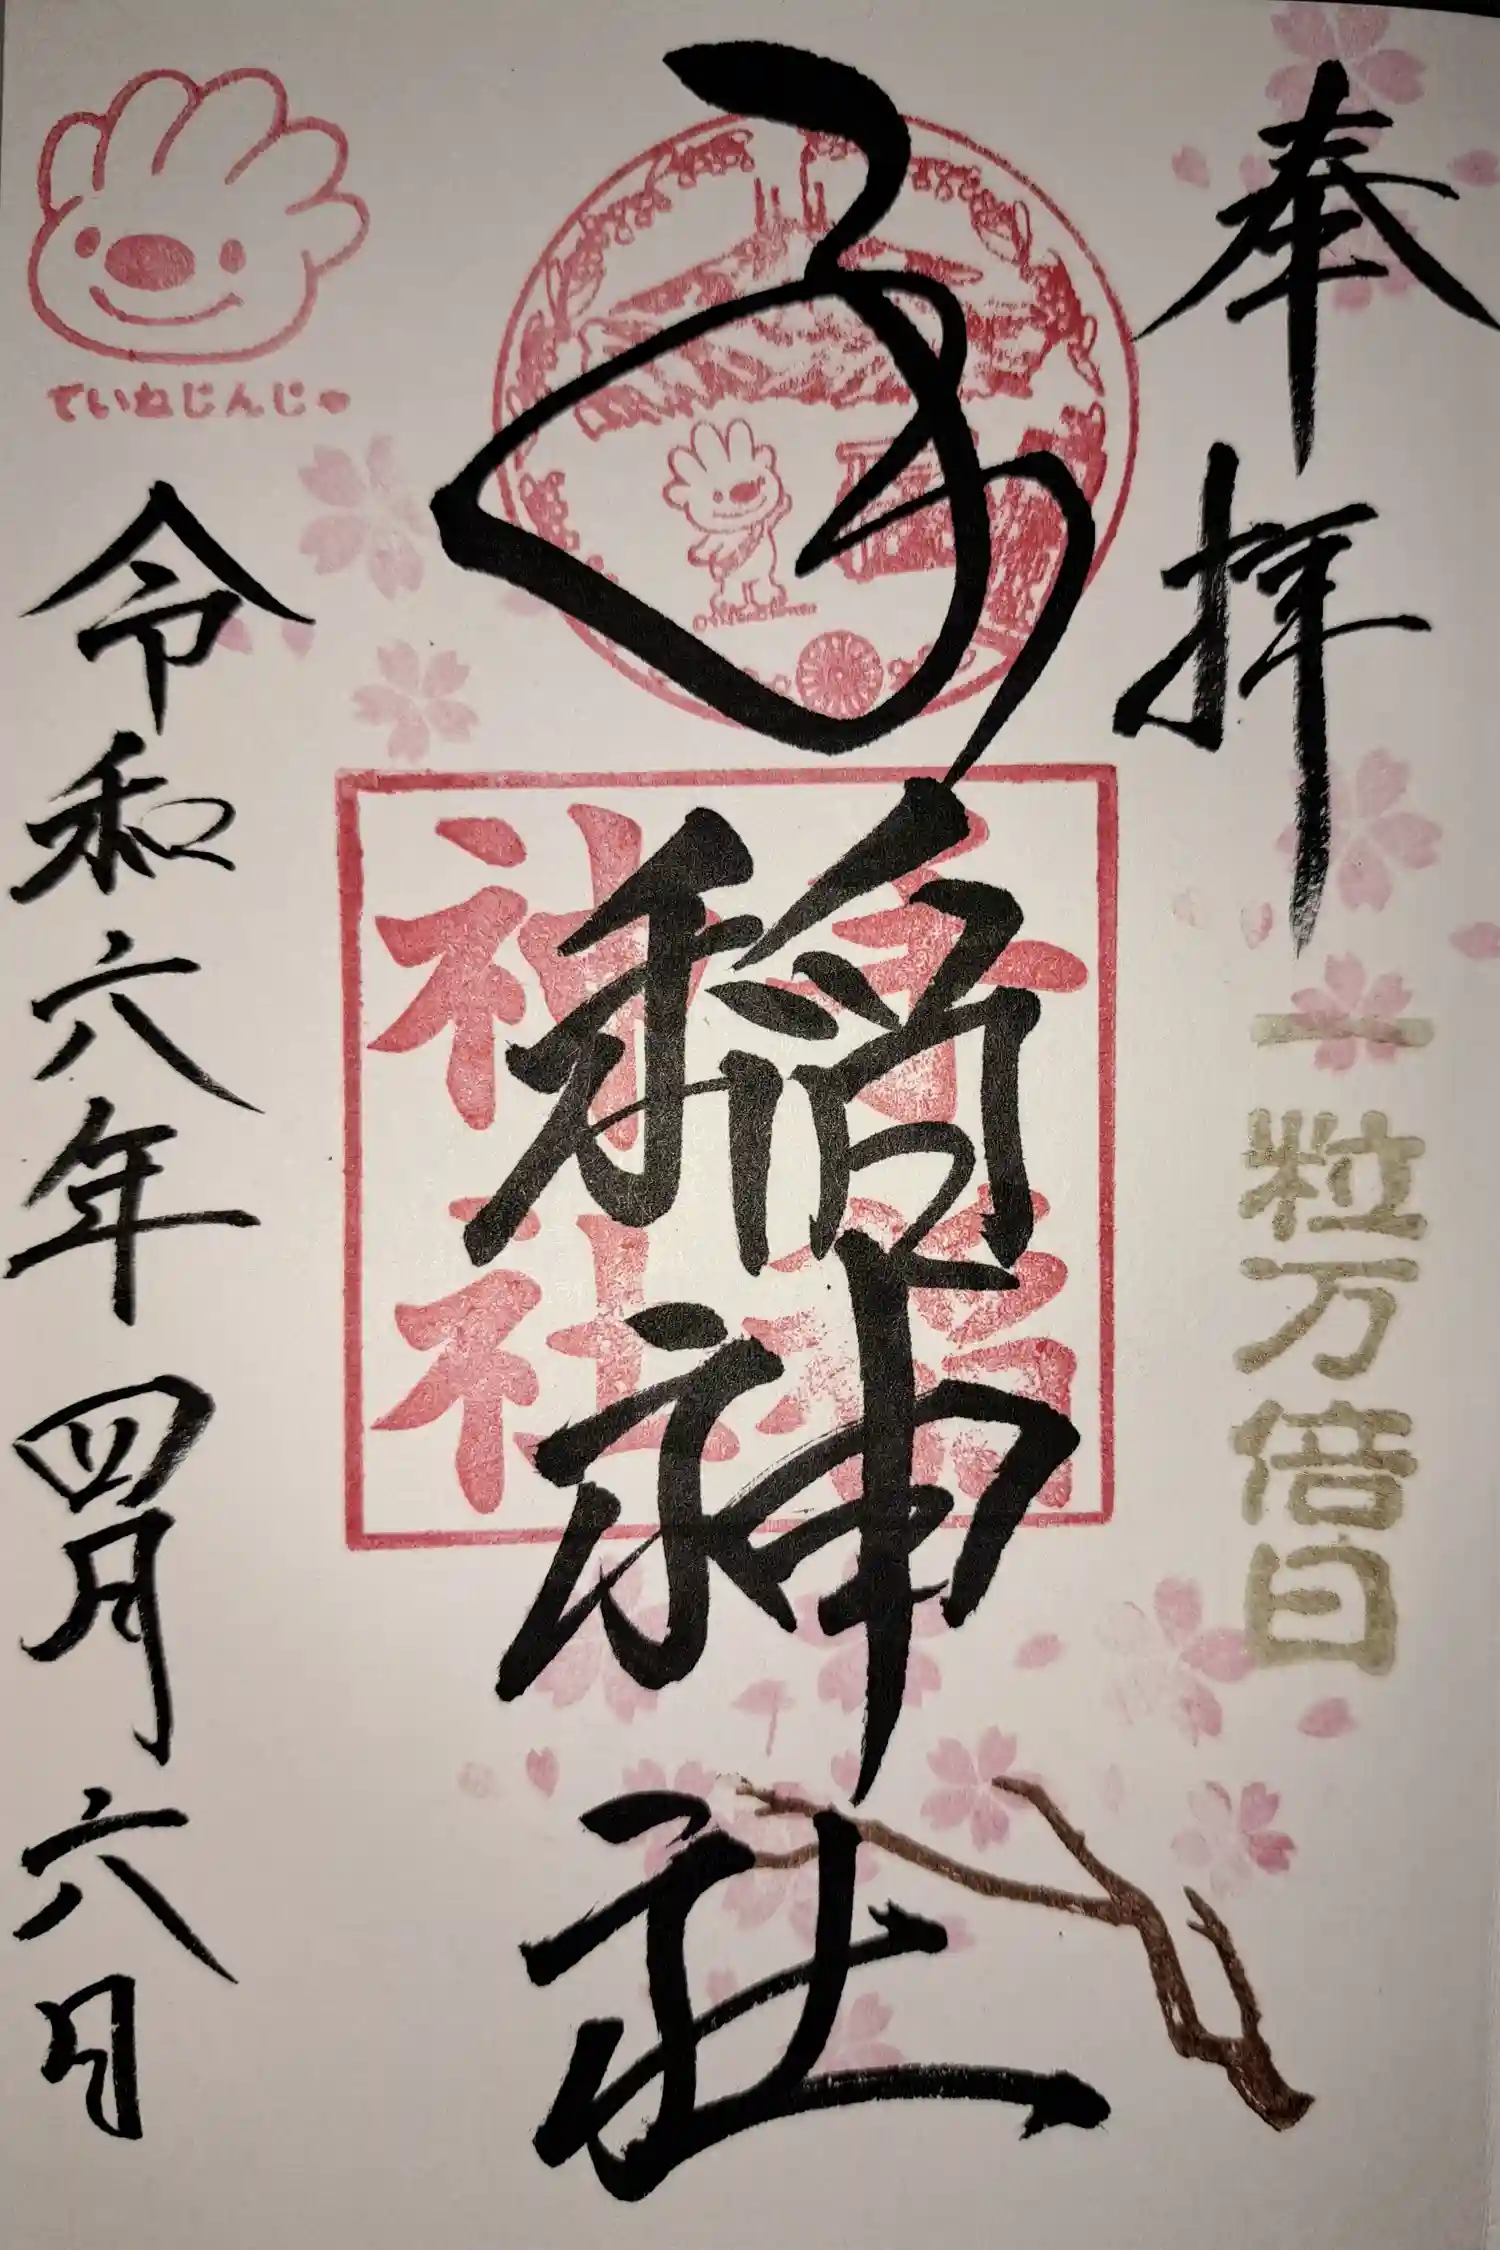 奉拝
一粒万倍日
手稲神社
手稲
神社
ていねじんじゃ
令和六年四月六日